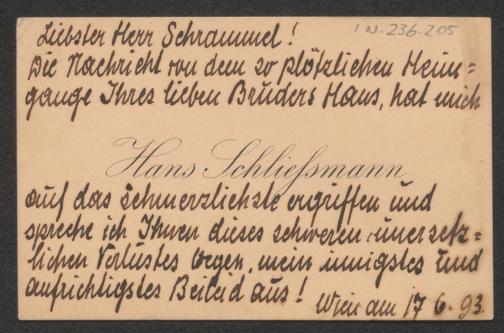 Liebster Herr Schrammel!
I N. 236.205
Die Nachricht von dem so plötzlichen Heim=
gange Ihres lieben Bruders Hans, hat mich
Hans Schliessmann
auf das schmerzlichste ergriffen und
spreche ich Ihnen dieses schweren, unersetz=
lichen Verlustes wegen, mein innigstes und
aufrichtigstes Beileid aus!
Wien am 17 6. 93.